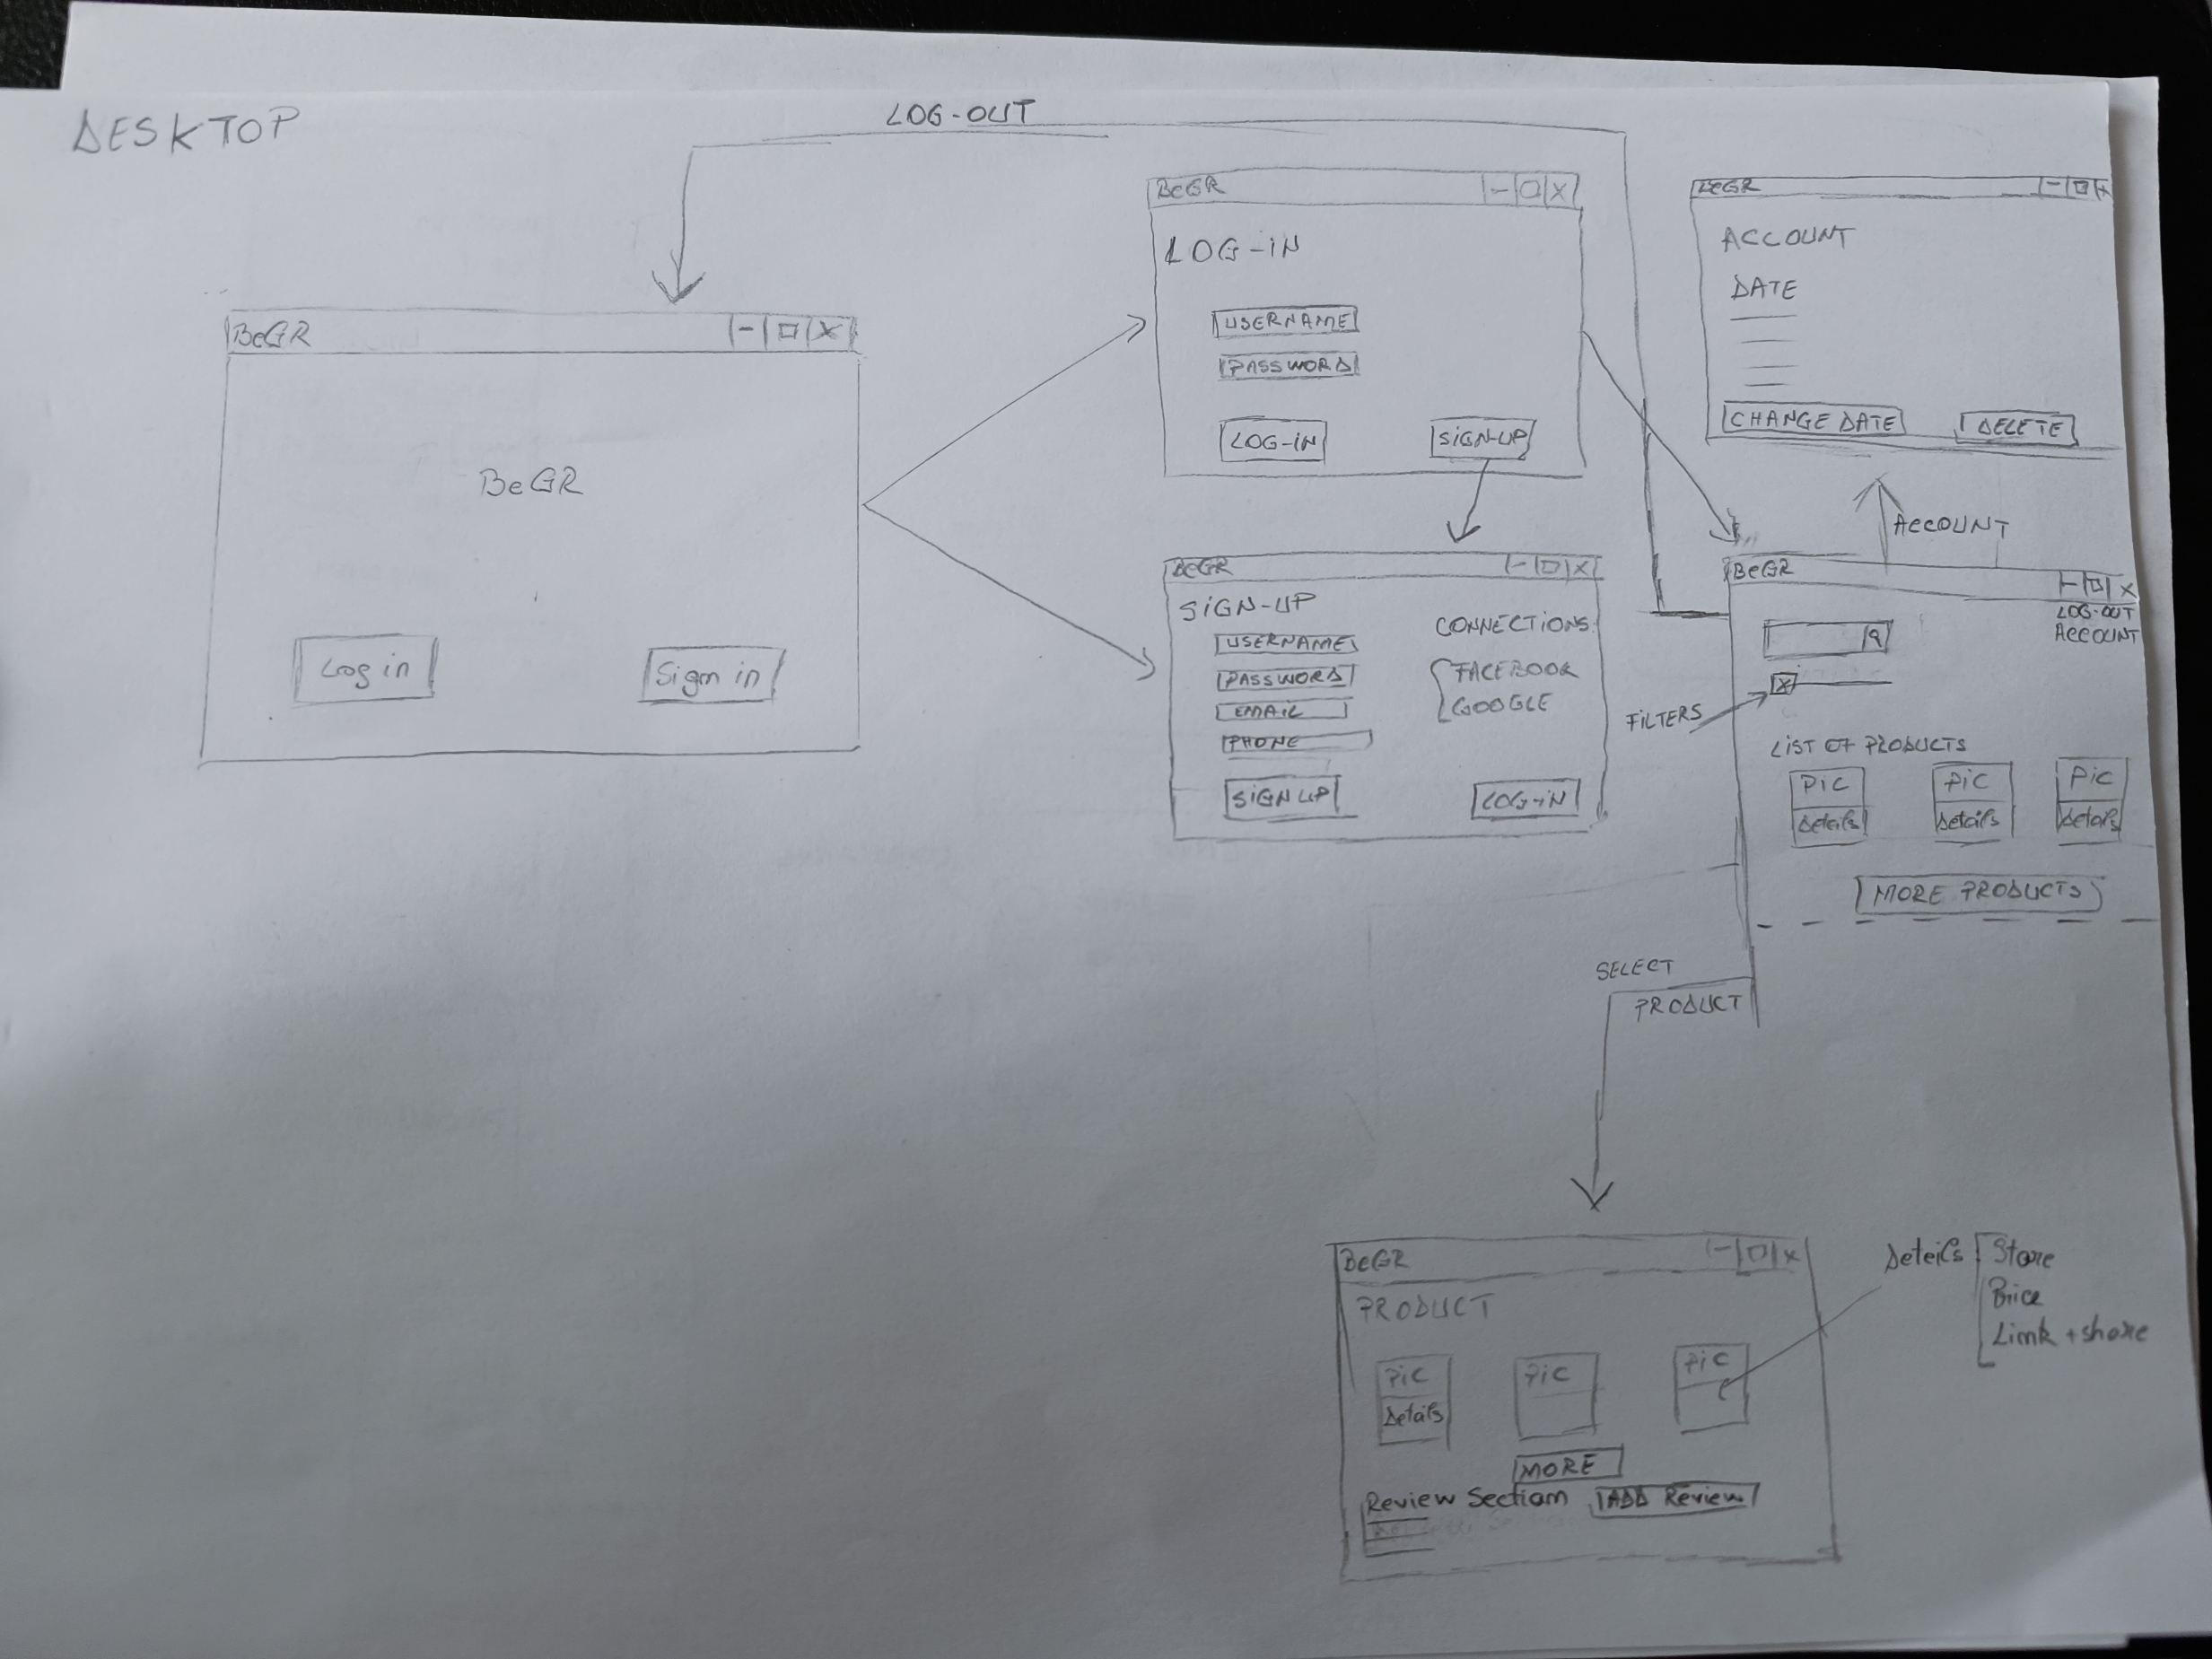 DESKTOP
LOG-OUT
BeGR
BeGR
Log in
Sign in
BeGR
LOG-iN
USERNAME
PASSWORD
LOG-iN
SiGN-UP
BeGR
SiGN-UP
USERNAME
PASSWORD
EMAIL
PHONE
CONNECTIONS
FACEBOOK
GOOGLE
SiGN UP
LOG-iN
BeGR
ACCOUNT
DATE
CHANGE DATE
DELETE
ACCOUNT
BeGR
LOG-OUT
ACCOUNT
FiLTERS
LiST OF PRODUCTS
PiC
PiC
PiC
Details
Details
Details
MORE PRODUCTS
SELECT
PRODUCT
BeGR
PRODUCT
PiC
PiC
PiC
Details
MORE
Review Section
ADD Review
Details
Store
Price
Link + share